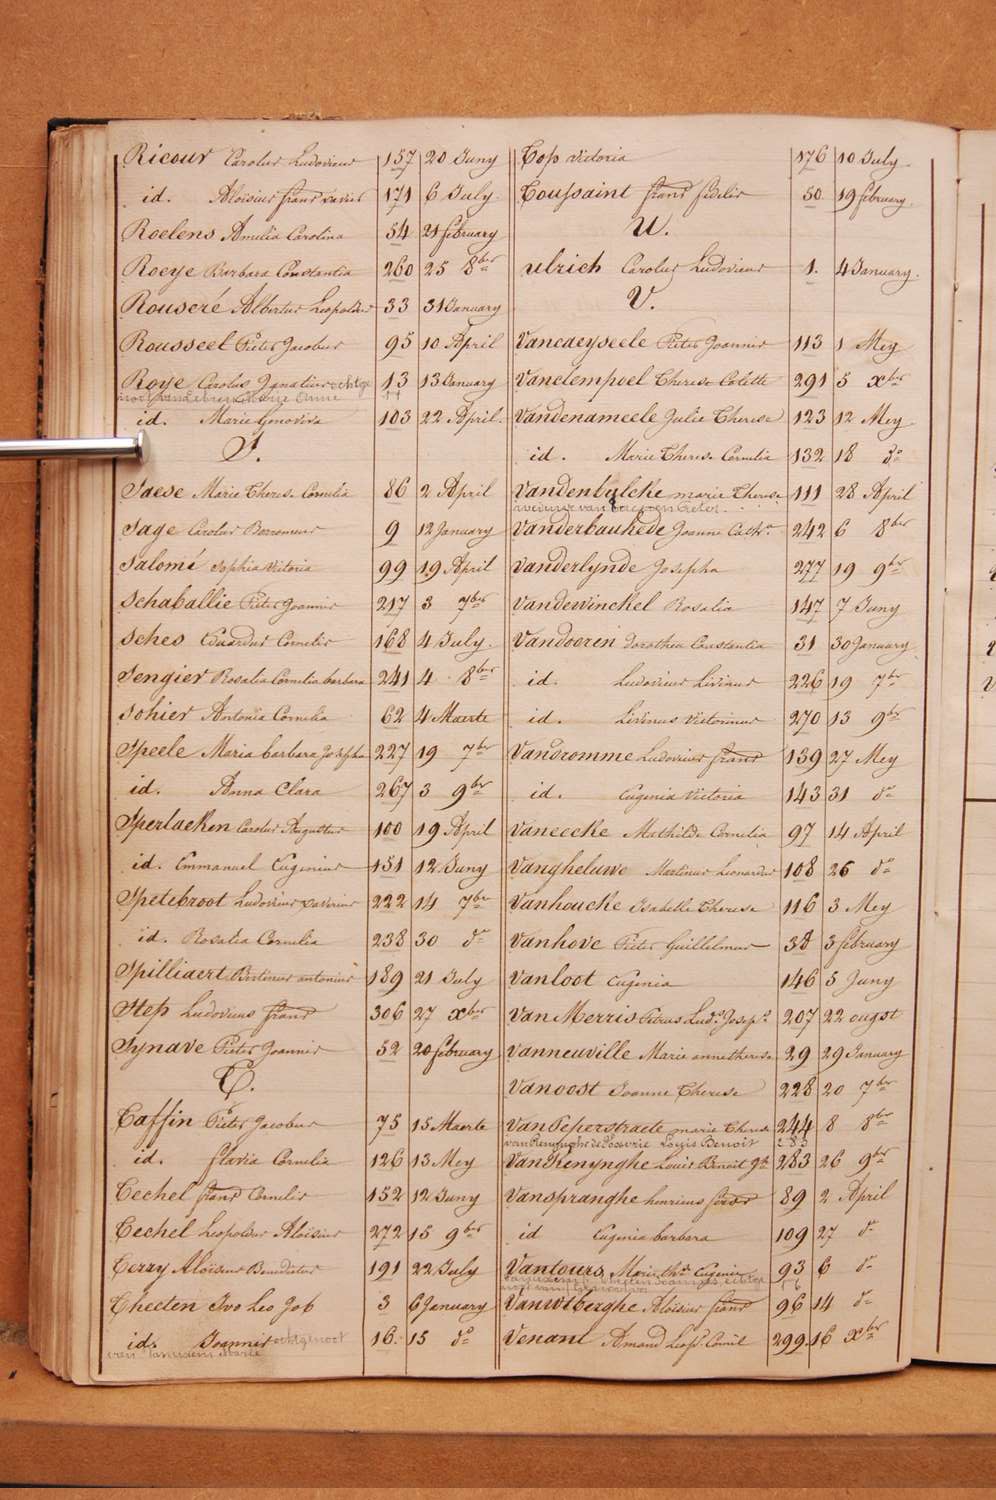 Ricour Carolus Ludovicus 157 20 Juny
id. Aloisius frans xavier 171 6 July
Roelens Amelia Carolina 54 21 february
Roeye Barbara Constantia 260 25 8ber
Rouseré Albertus Leopoldus 33 31 January
Rousseel Pieter Jacobus 95 10 April
Roye Carolus Ignatius echtge 13 13 January
id. Marie Genoviva 103 22 April.
S.
Saese Marie Therese Cornelia 86 2 April
Sage Carolus Borromeus 9 12 January
Salomé Sophia Victoria 99 19 April
Schaballie Pieter Joannes 217 3 7ber
Sches Eduardus Cornelis 168 4 July.
Sengier Rosalia Cornelia barbara 241 4 8ber
Sohier Antonia Cornelia 62 4 Maerte
Speele Maria barbara Josepha 227 19 7ber
id. Anna Clara 267 3 9br
Sperlaeken Carolus Augustus 100 19 April
id. Emmanuel Eugenius 151 12 Juny
Spetebroot Ludovicus xaverius 222 14 7br
id. Rosalia Cornelia 238 30 do
Spilliaert Bertinus antonius 189 21 July
Step Ludovicus frans 306 27 xber
Synave Pieter Joannes 52 20 february
T.
Taffin Pieter Jacobus 75 15 Maerte
id. flavia Cornelia 126 13 Mey
Techel frans Cornelis 152 12 Juny
Techel Leopoldus Aloïsius 272 15 9ber
Terry Aloïsius Benedictus 191 22 July
Theeten Ivo Leo Job 3 6 January
id. Joannes echtgenoot 16. 15 do
Top Victoria 176 10 July.
Toussaint frans fidelis 50 19 february.
U.
ulrich Carolus Ludovicus 1. 4 January.
V.
Vancaeyseele Pieter Joannes 113 1 Mey
Vanclempoel Therese Colette 291 5 xber
Vandenameele Julie Therese 123 12 Mey
id. Marie Therese Cornelia 132 18 do
Vandenbylcke marie Therese 111 28 April
Vanderbauhede Joanna Cath. 242 6 8ber
Vanderlynde Josepha 277 19 9ber
Vandewinckel Rosalia 147 7 Juny
Vandooren Dorothea Constantia 31 30 January
id. Ludovicus Livinus 226 19 7ber
id. Livinus Victorinus 270 13 9ber
Vandromme Ludovicus frans 139 27 Mey
id. Eugenia Victoria 143 31 do
Vaneecke Mathilde Cornelia 97 14 April
Vangheluwe Martinus Leonardus 108 26 do
Vanhoucke Isabelle Therese 116 3 Mey
Vanhove Pieter Guillelmus 38 3 february
Vanloot Eugenia 146 5 Juny
Van Merris Petrus Ludo Josepo 207 22 ougst
Vanneuville Marie annetherese 29 29 January
Vanoost Joanne Therese 228 20 7ber
Van Peperstraete marie Therese 244 8 8ber
Louis Benoit 283
Van Renynghe Louis Benoit 283 26 9ber
Vanspranghe henricus frans 89 2 April
id Eugenia barbara 109 27 do
Vantours Marie Eugenie 93 6 do
Vanwtberghe Aloïsius frans 96 14 do
Venant Amand 299. 16 xber